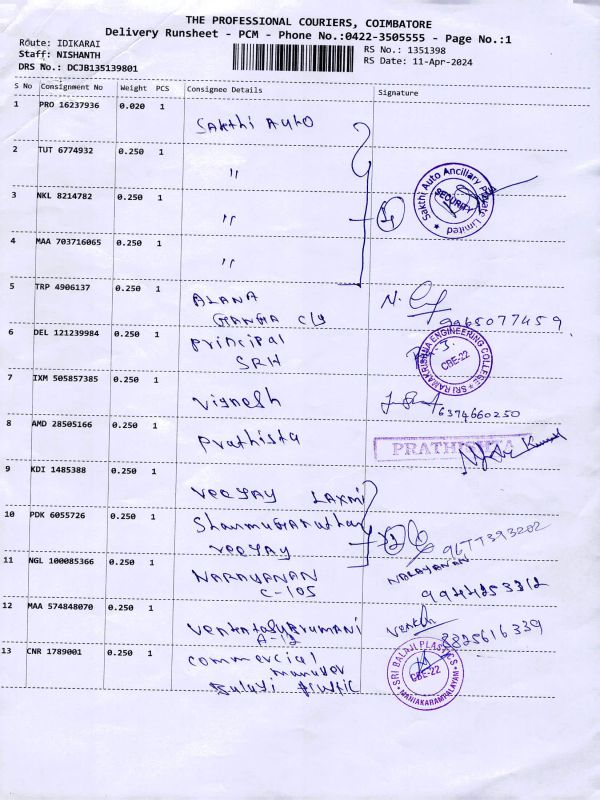 THE PROFESSIONAL COURIERS, COIMBATORE
Delivery Runsheet - PCM - Phone No.:0422-3505555 - Page No.:1
Route: IDIKARAI
RS No.: 1351398
Staff: NISHANTH
RS Date: 11-Apr-2024
DRS No.: DCJB135139801
S No Consignment No Weight PCS Consignee Details Signature
1 PRO 16237936 0.020 1
Sakthi Auto
2 TUT 6774932 0.250 1
"
3 NKL 8214782 0.250 1
"
4 MAA 703716065 0.250 1
"
Sakthi Auto Ancillary Private Limited
SECURITY
5 TRP 4906137 0.250 1
ALANA
GANGA
9965077459
6 DEL 121239984 0.250 1
principal
SRH
SRI RAMAKRISHNA ENGINEERING COLLEGE
CBE-22
7 IXM 505857385 0.250 1
Vignesh
6374660250
8 AMD 28505166 0.250 1
Prathista
PRATHISHTA
9 KDI 1485388 0.250 1
Veejay Laxmi
10 PDK 6055726 0.250 1
veejay
9677393202
11 NGL 100085366 0.250 1
NARAYANAN
C-105
NARAYANAN
9944253312
12 MAA 574848070 0.250 1
A-12
8825616339
13 CNR 1789001 0.250 1
commercial
SRI BALAJI PLASTICS
CBE-22
MANIAKARAMPALAYAM